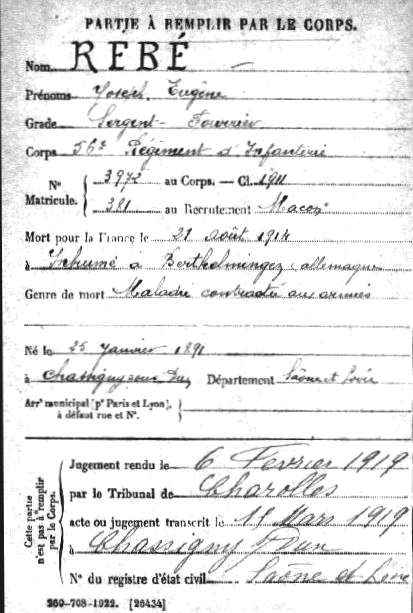 PARTIE À REMPLIR PAR LE CORPS.
Nom REBÉ
Prénoms Joseph Eugène
Grade Sergent-Fourrier
Corps 56e Régiment d'Infanterie
N° Matricule. { 3972 au Corps. — Cl. 1911
381 au Recrutement Macon
Mort pour la France le 21 août 1914
à Inhumé à Berthelmingen (allemagne
Genre de mort Maladie contractée aux armées
Né le 25 Janvier 1891
à Chassigny sous Dun Département Saône et Loire
Arrt municipal (pr Paris et Lyon), à défaut rue et N°. }
Cette partie n'est pas à remplir par le Corps.
Jugement rendu le 6 Fevrier 1919
par le Tribunal de Charolles
acte ou jugement transcrit le Mars 1919
à Chassigny s/ Dun
N° du registre d'état civil Saône et Loire
269-708-1922. [26434]